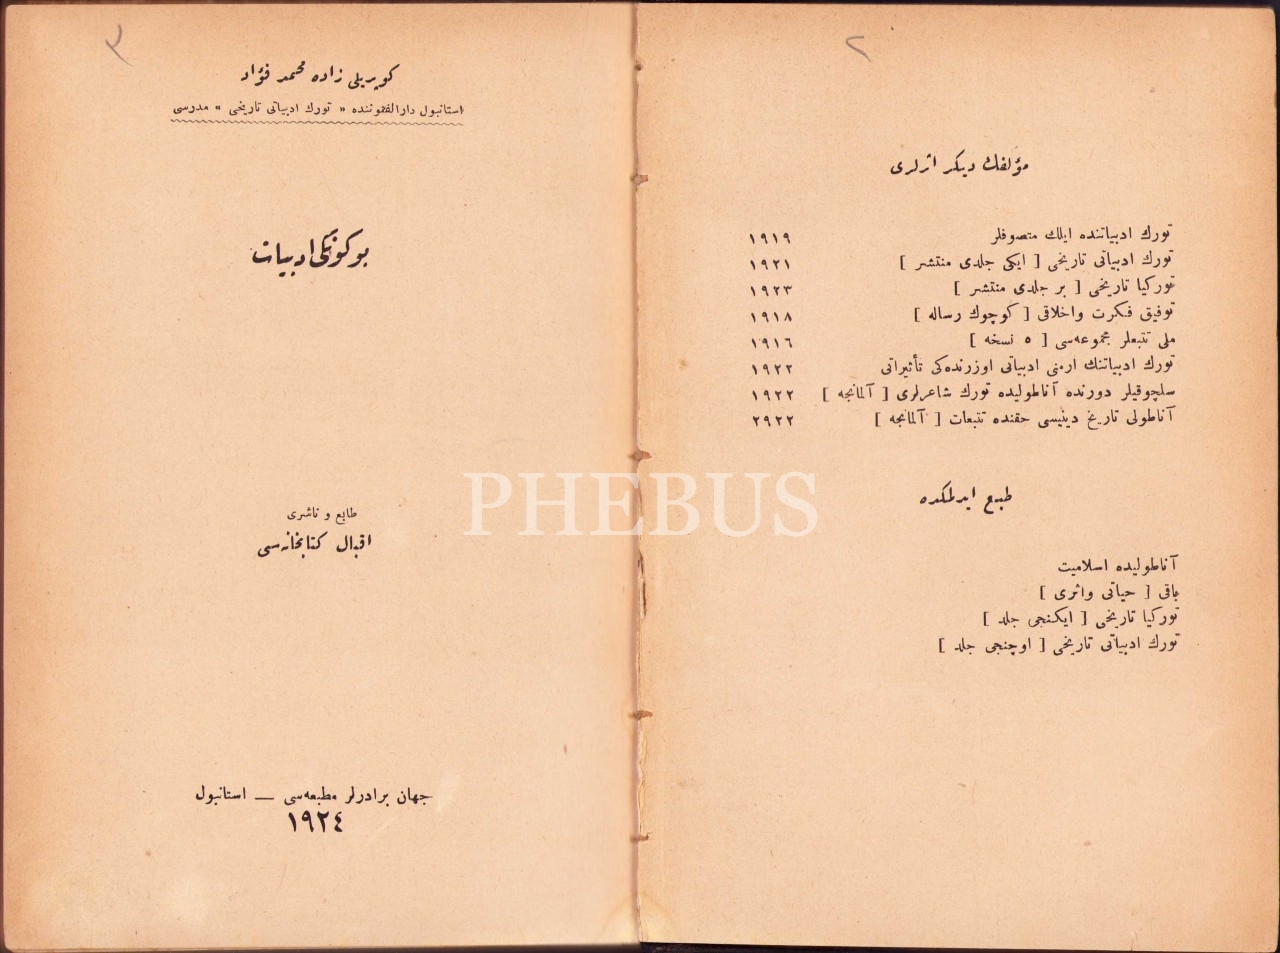 ٢
مؤلفك ديكر اثرلرى
تورك ادبياتنده ايلك متصوفلر ١٩١٩
تورك ادبياتى تاريخى [ ايكى جلدى منتشر ] ١٩٢١
توركيا تاريخى [ بر جلدى منتشر ] ١٩٢٣
توفيق فكرت واخلاقى [ كوچوك رساله ] ١٩١٨
ملى تتبعلر مجموعه‌سى [ ٥ نسخه ] ١٩١٦
تورك ادبياتنك ارمنى ادبياتى اوزرنده‌كى تأثيراتى ١٩٢٢
سلچوقيلر دورنده آناطوليده تورك شاعرلرى [ آلمانجه ] ١٩٢٢
آناطولى تاريخ دينيسى حقنده تتبعات [ آلمانجه ] ٢٩٢٢
طبع ايدلمكده
آناطوليده اسلاميت
باقى [ حياتى واثرى ]
توركيا تاريخى [ ايكنجى جلد ]
تورك ادبياتى تاريخى [ اوچنجى جلد ]
٣
كوپريلى زاده محمد فؤاد
استانبول دارالفنوننده « تورك ادبياتى تاريخى » مدرسى
بوكونكى ادبيات
طابع و ناشرى
اقبال كتابخانه‌سى
جهان برادرلر مطبعه‌سى — استانبول
١٩٢٤
PHEBUS